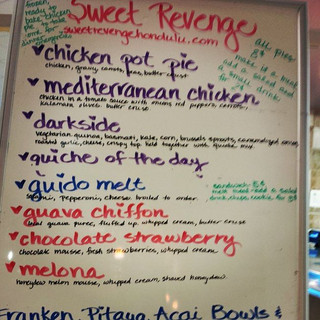 Sweet Revenge
sweetrevengehonolulu.com
all pies:
8$
make it a meal
add a salad and
a small drink
chicken pot pie
chicken, gravy, carrots, peas, butter crust
mediterranean chicken
chicken in a tomato sauce with onions, red peppers, carrots,
kalamata olives, butter crust
darkside
vegetarian quinoa, basmati, kale, corn, brussels sprouts, caramelized onions,
roasted garlic, cheese, crispy top held together with quiche mix
quiche of the day
guido melt
pepperoni, cheese, broiled to order
guava chiffon
guava puree, fluffed up whipped cream, butter crust
chocolate strawberry
chocolate mousse, fresh strawberries, whipped cream
melona
honeydew melon mousse, whipped cream, shaved honeydew
Franken, Pitaya, Acai Bowls &